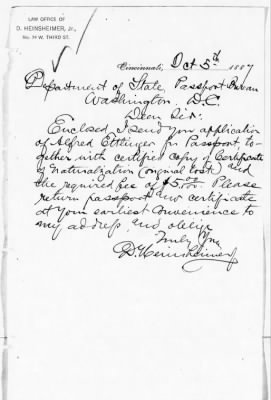 LAW OFFICE OF
D. HEINSHEIMER, Jr.,
No. 34 W. THIRD ST.
Cincinnati, Oct 5th 1887
Department of State, Passport Bureau
Washington D.C.
Dear Sir:
Enclosed I send you application
of Alfred Ettlinger for Passport to-
gether with certified copy of Certificate
of Naturalization (original lost) and
the required fee of $5.00. Please
return passport and certificate
at your earliest convenience to
my address, and oblige
Truly Yrs
D. Heinsheimer Jr